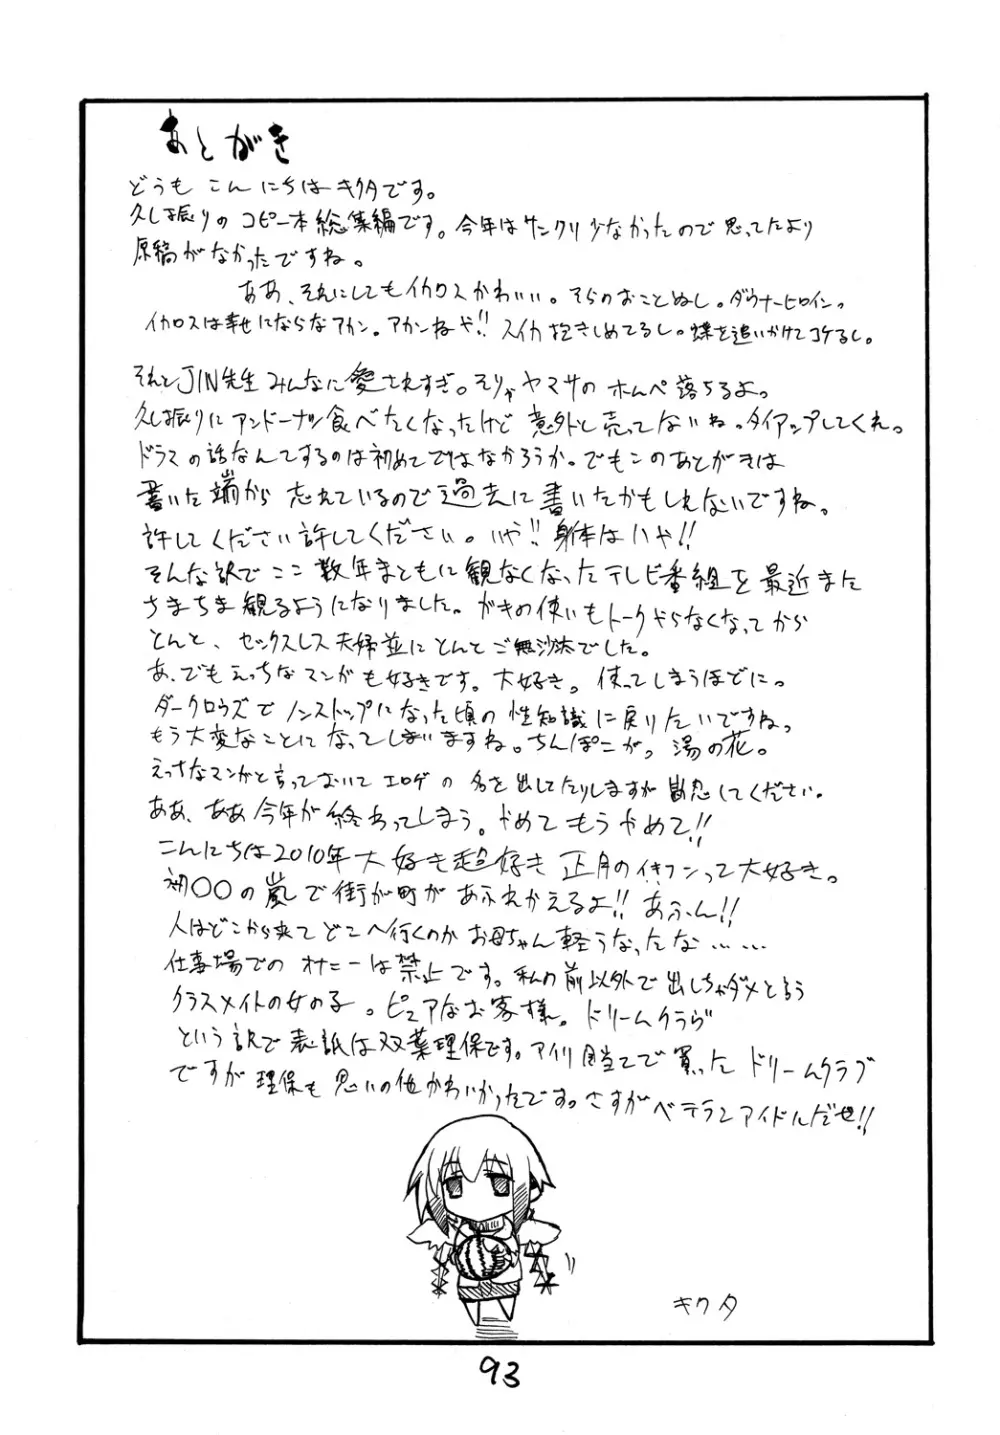 あとがき
どうも こんにちは キクタです。
久し振りの コピー本総集編です。今年はサンクリ少なかったので思ってたより
原稿がなかったですね。
ああ、それにしてもイカロスかわいい。そらのおとしぬし。ダウナーヒロイン。
イカロスは幸せにならなアカン。アカンねや!! スイカ抱きしめてるし。蝶を追いかけてコケるし。
それとJIN先生みんなに愛されすぎ。そりゃヤマサのホムペ落ちるよ。
久し振りにアンドーナツ食べたくなったけど 意外と売ってないね。タイアップしてくれ。
ドラマの話なんてするのは初めてではなかろうか。でもこのあとがきは
書いた端から 忘れているので過去に書いたかもしれないですね。
許してください許してください。いや!! 身体はいや!!
そんな訳でここ数年まともに観なくなったテレビ番組を最近また
ちまちま観るようになりました。ガキの使いもトークやらなくなってから
とんと、セックスレス夫婦並にとんとご無沙汰でした。
あ、でもえっちなマンガも好きです。大好き。使ってしまうほどに。
ダークロウズでノンストップになった頃の性知識に戻りたいですね。
もう大変なことになってしまいますね。ちんぽこがっ 湯の花。
えっちなマンガと言っておいてエロゲの名を出してたりしますが勘忍してください。
ああ、ああ今年が終わってしまう。やめてもうやめて!!
こんにちは2010年大好き超好き 正月のイキフンって大好き。
初〇〇の嵐で街が町があふれかえるよ!! あふん!!
人はどこから来てどこへ行くのか お母ちゃん軽うなったな……
仕事場でのオナニーは禁止です。私の前以外で出しちゃダメと言う
クラスメイトの女の子。ピュアなお客様。ドリームクラヴ
という訳で表紙は双葉理保です。アイリ目当てで買ったドリームクラブ
ですが理保も思いの他かわいかったです。さすがベテランアイドルだぜ!!
キクタ
93